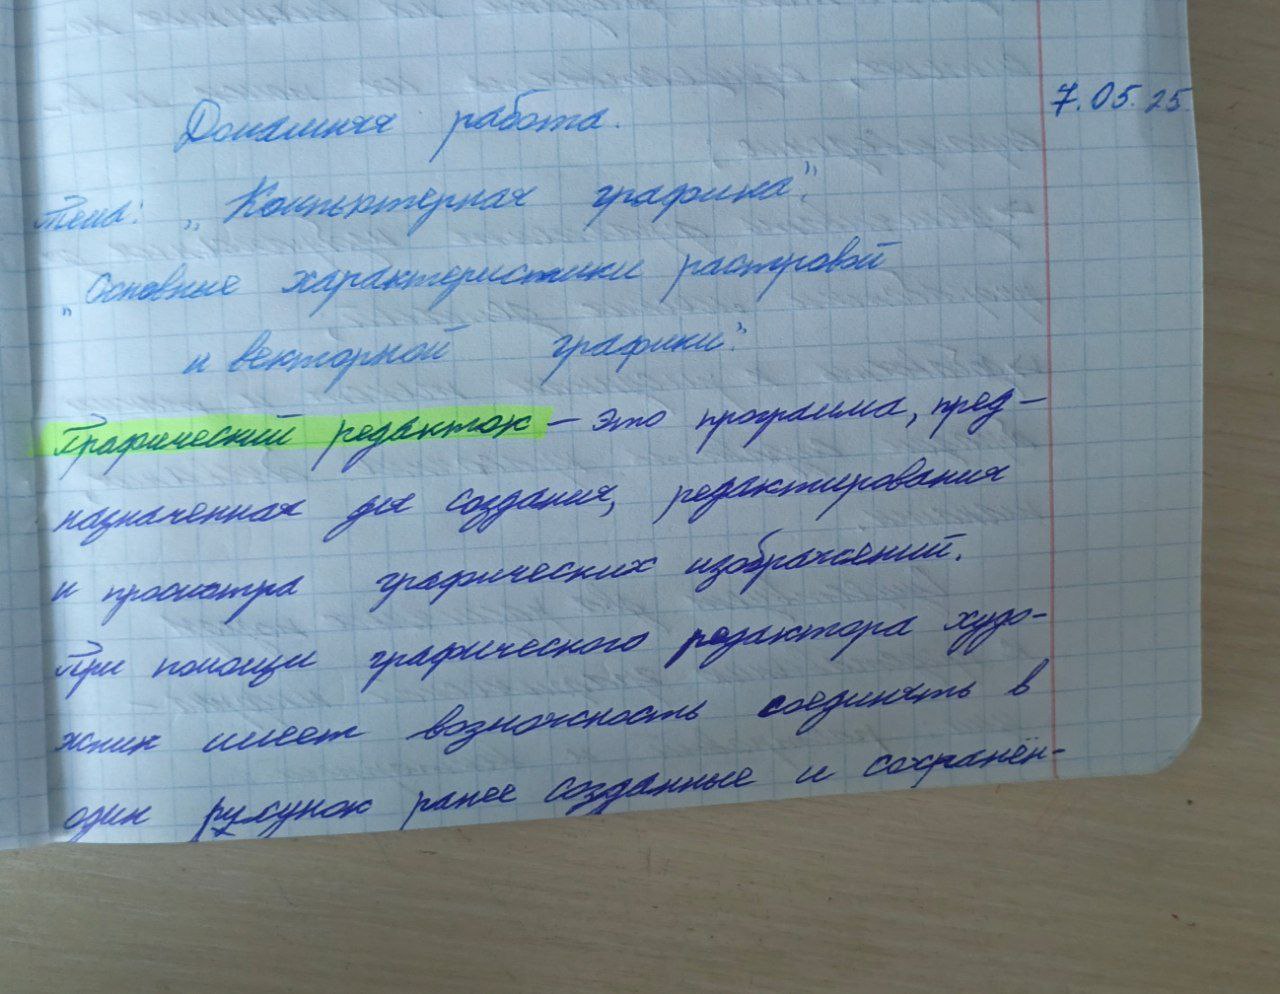 7.05.25
Домашняя работа.
Тема: „Компьютерная графика".
„Основные характеристики растровой
и векторной графики".
Графический редакток – это программа, пред-
назначенная для создания, редактирования
и просмотра графических изображений.
При помощи графического редактора худо-
жник имеет возможность соединять в
один рисунок ранее созданные и сохранён-